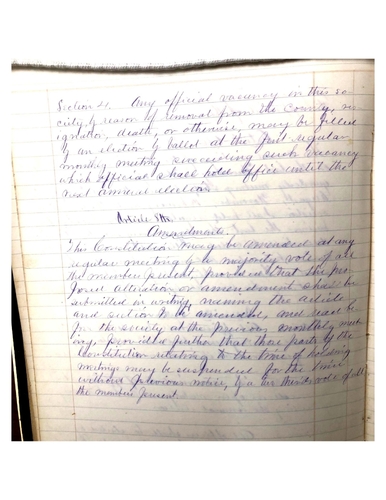 Section 4. Any official vacancy in this so-
ciety by reason of removal from the County, res-
ignation, death, or otherwise, may be filled
by an election by ballot at the first regular
monthly meeting succeeding such vacancy
which official shall hold office until the
next annual election.
Article 8th.
Amendments.
This Constitution may be amended at any
regular meeting by a majority vote of all
the members present, provided that the pro-
posed alteration or amendment shall be
submitted in writing, naming the article
and section to be amended, and read be-
for the society at the previous monthly meet
ing, provided further that those parts of the
Constitution relating to the time of holding
meetings may be suspended for the time
without previous notice, by a two thirds vote of all
the members present.